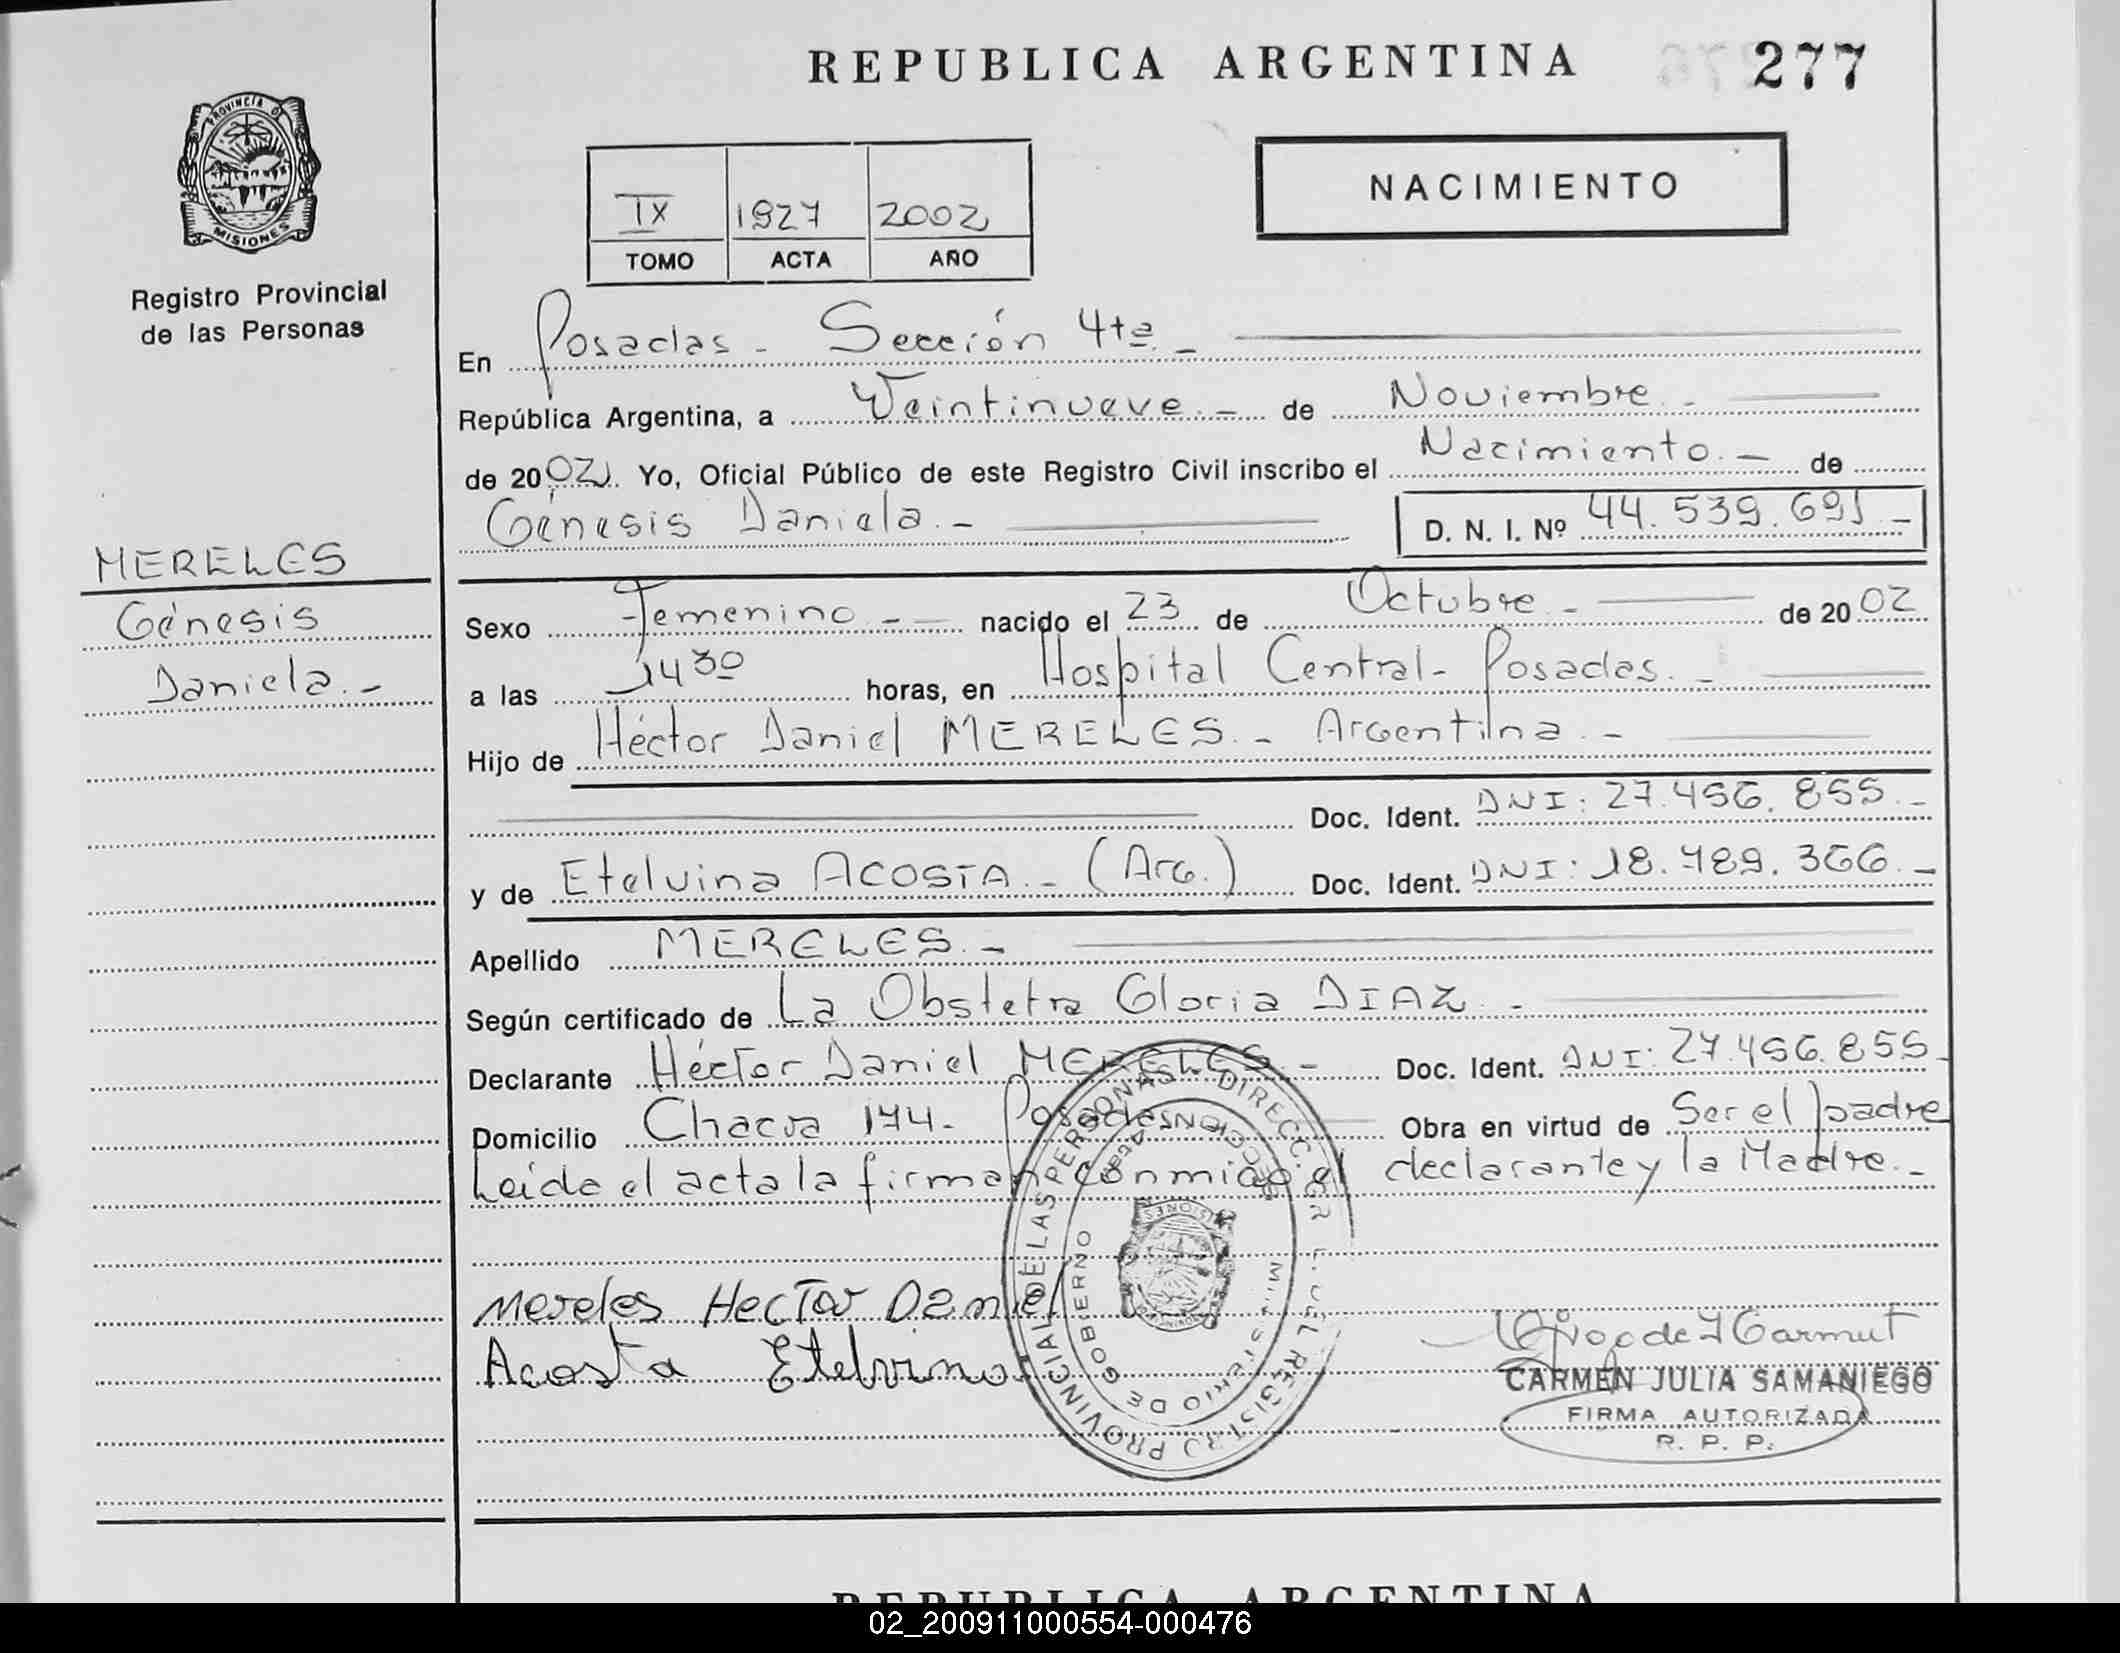 REPUBLICA ARGENTINA 277
PROVINCIA D
MISIONES
Registro Provincial
de las Personas
IX 1927 2002
TOMO ACTA AÑO
NACIMIENTO
En Posadas - Sección 4ta. -
República Argentina, a Veintinueve. - de Noviembre. -
de 2002. Yo, Oficial Público de este Registro Civil inscribo el Nacimiento. - de
Génesis Daniela. - D. N. I. Nº 44.539.691 -
MERELES
Génesis
Daniela. -
Sexo Femenino - nacido el 23 de Octubre - de 2002
a las 1430 horas, en Hospital Central - Posadas. -
Hijo de Héctor Daniel MERELES. - Argentina. -
Doc. Ident. DNI: 27.456.855. -
y de Etelvina ACOSTA. - (Arg.) Doc. Ident. DNI: 18.489.366. -
Apellido MERELES. -
Según certificado de La Obstetra Gloria DIAZ. -
Declarante Héctor Daniel MERELES - Doc. Ident. DNI: 27.456.855-
Domicilio Chacra 174. Posadas Obra en virtud de Ser el padre
Leída el acta la firman conmigo el declarante y la Madre. -
Mereles Hector Daniel
Acosta Etelvina
DIRECC. GRAL. DEL REGISTRO PROVINCIAL DE LAS PERSONAS
MINISTERIO DE GOBIERNO
MISIONES
CARMEN JULIA SAMANIEGO
FIRMA AUTORIZADA
R. P. P.
REPUBLICA ARGENTINA
02_200911000554-000476